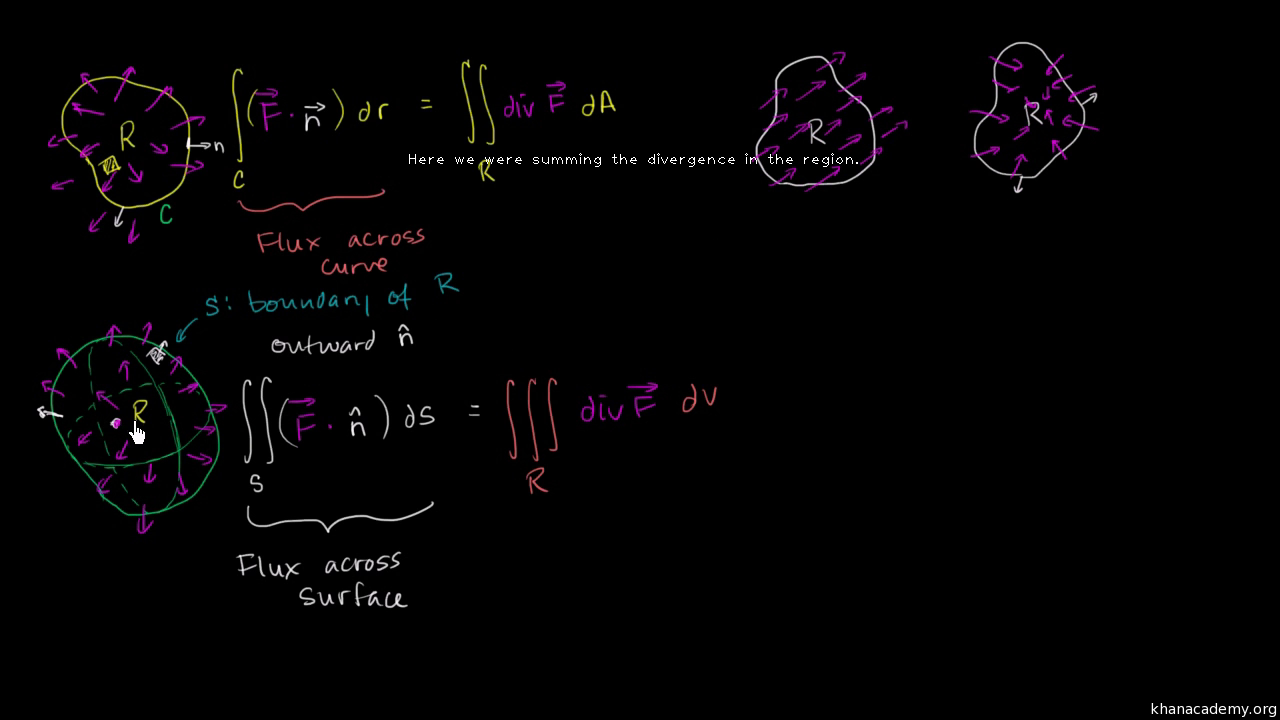 R
n
C
∫ (F⃗ · n⃗) dr = ∬ div F⃗ dA
C
R
Here we were summing the divergence in the region.
R
R
Flux across
curve
S: boundary of R
outward n̂
R
∬ (F⃗ · n̂) dS = ∭ div F⃗ dV
S
R
Flux across
surface
khanacademy.org